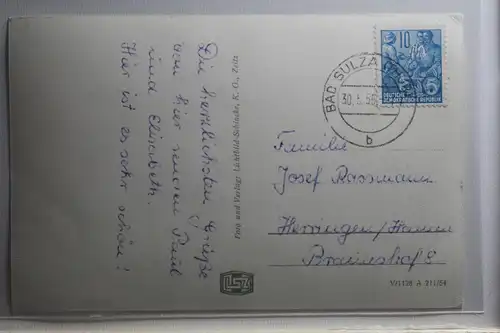 Die herzlichsten Grüße
von hier senden Paul
und Elisabeth.
Hier ist es sehr schön!
Foto und Verlag: Lichtbild-Schincke, K. G., Zeitz
LSZ
BAD SULZA
30.
b
10
DEUTSCHE
DEMOKRATISCHE REPUBLIK
Familie
Josef Rossmann
Herringen/Hamm
V/11/28 A 311/54